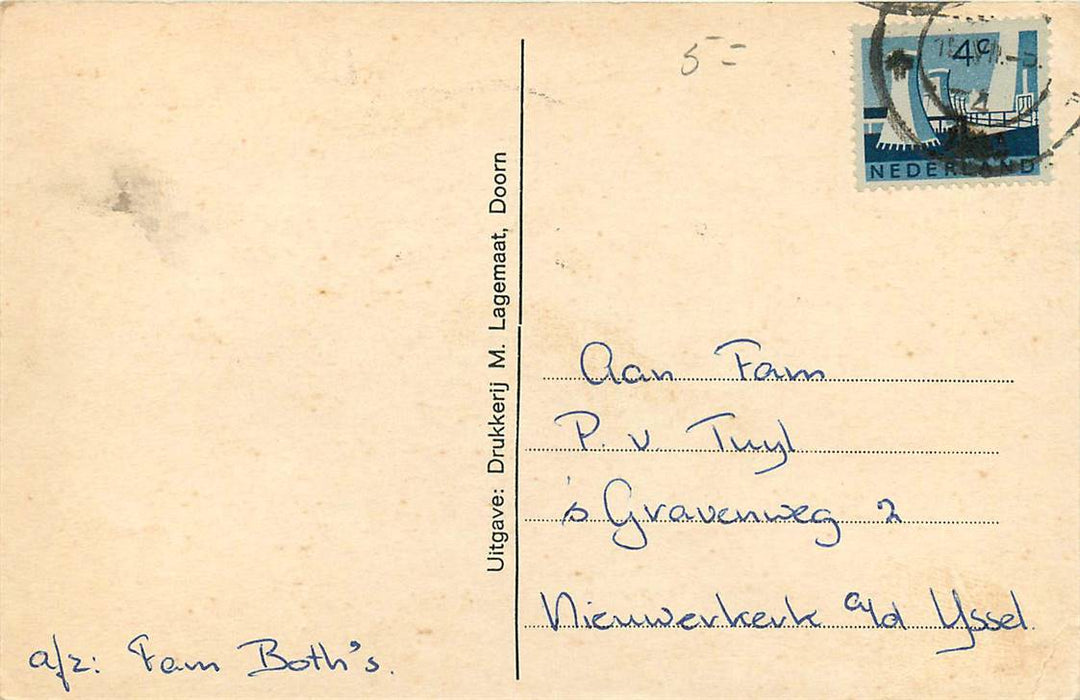 5=
4c
NEDERLAND
Uitgave: Drukkerij M. Lagemaat, Doorn
Aan Fam
P. v Tuyl
's Gravenweg 2
Nieuwerkerk a/d Yssel.
a/z: Fam Both's.